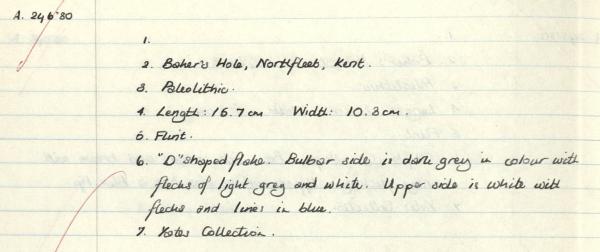 A. 246'80
1.
2. Baker's Hole, Northfleet, Kent.
3. Paleolithic.
4. Length: 16.7cm Width: 10.3cm.
5. Flint.
6. "D" shaped flake. Bulbar side is dark grey in colour with
flecks of light grey and white. Upper side is white with
flecks and lines in blue.
7. Yates Collection.